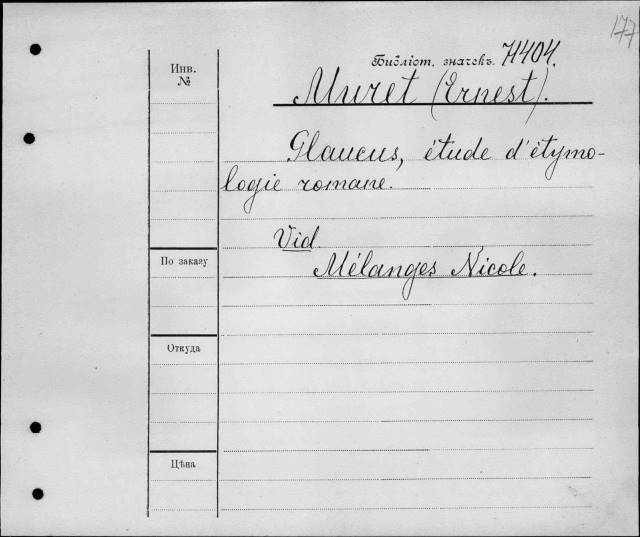 177
Библіот. значекъ. 71404.
Инв. №
Muret (Ernest).
Glaucus, étude d'étymo-
logie romane.
Vid.
По заказу
Mélanges Nicole.
Откуда
Цѣна